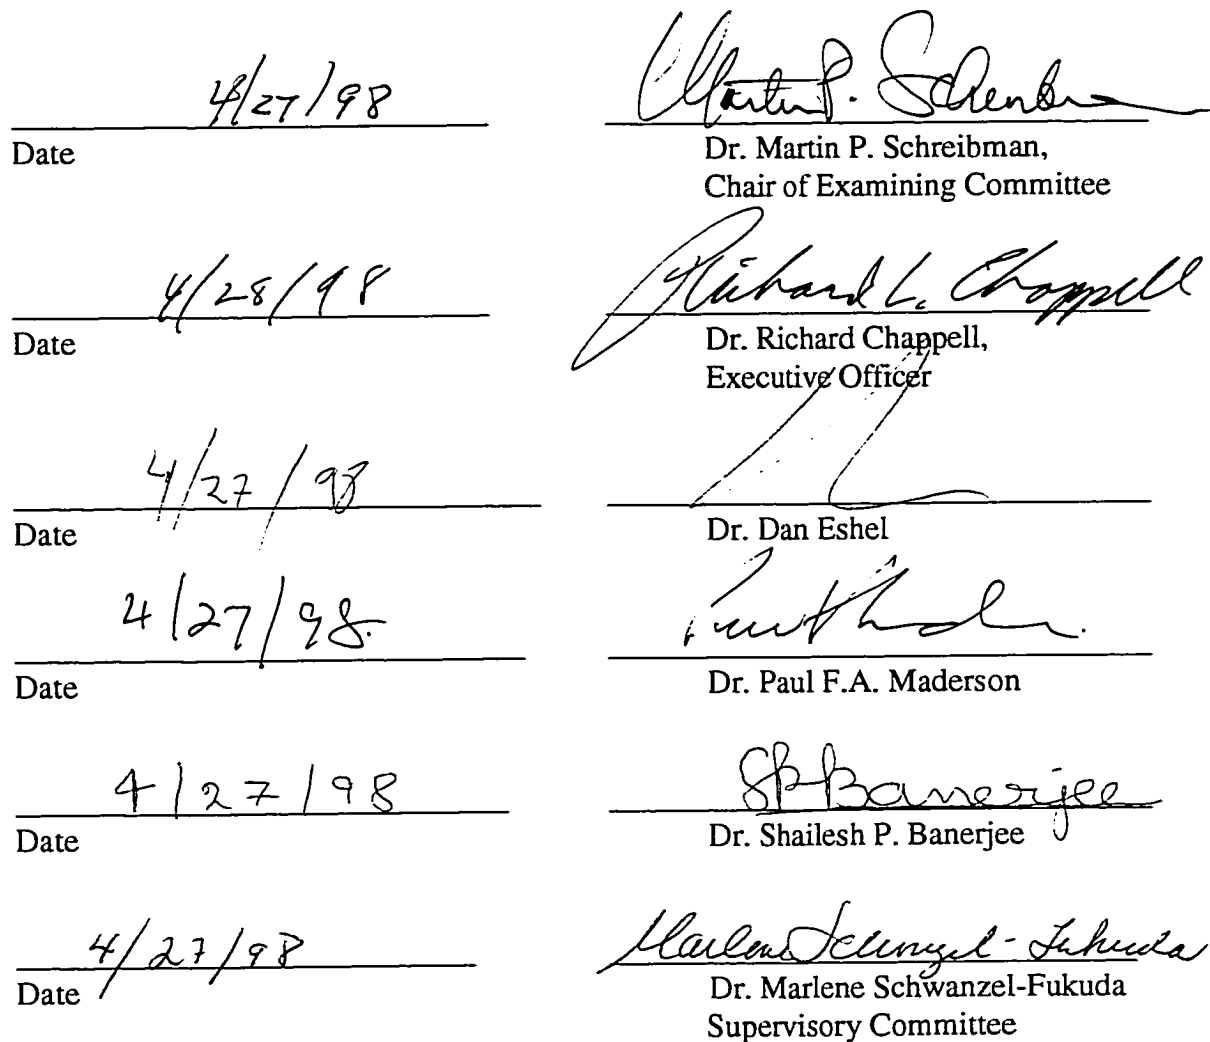 4/27/98 Martin P. Schreibman
Date Dr. Martin P. Schreibman,
Chair of Examining Committee
4/28/98 Richard L. Chappell
Date Dr. Richard Chappell,
Executive Officer
4/27/98
Date Dr. Dan Eshel
4/27/98.
Date Dr. Paul F.A. Maderson
4/27/98 SPBanerjee
Date Dr. Shailesh P. Banerjee
4/27/98 Marlene Schwanzel-Fukuda
Date Dr. Marlene Schwanzel-Fukuda
Supervisory Committee